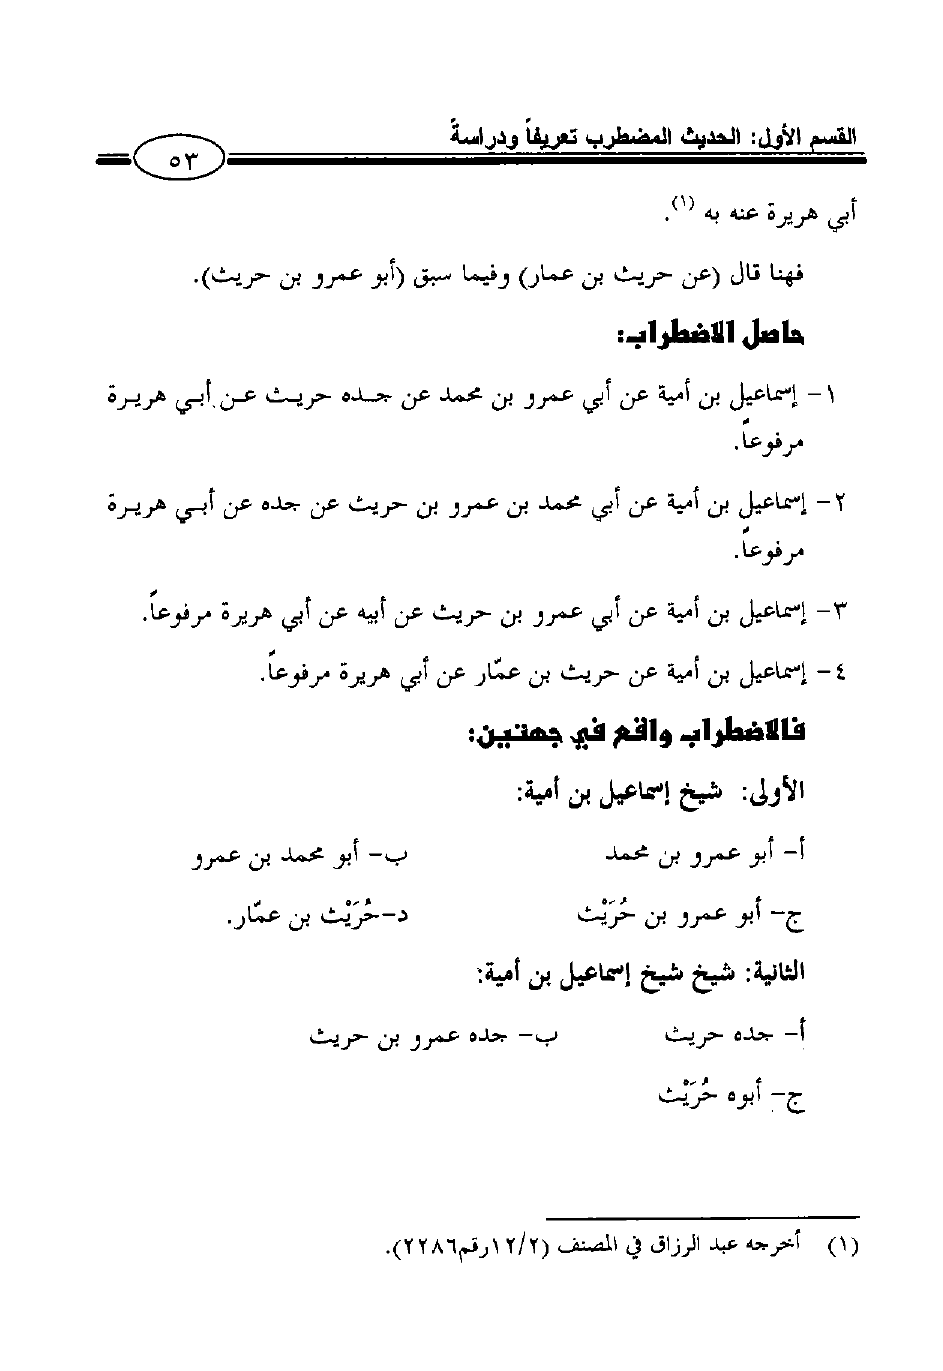 القسم الأول: الحديث المضطرب تعريفاً ودراسةً
٥٣
أبي هريرة عنه به (١).
فهنا قال (عن حريث بن عمار) وفيما سبق (أبو عمرو بن حريث).
حاصل الاضطراب:
١- إسماعيل بن أمية عن أبي عمرو بن محمد عن جده حريث عن أبي هريرة
مرفوعاً.
٢- إسماعيل بن أمية عن أبي محمد بن عمرو بن حريث عن جده عن أبي هريرة
مرفوعاً.
٣- إسماعيل بن أمية عن أبي عمرو بن حريث عن أبيه عن أبي هريرة مرفوعاً.
٤- إسماعيل بن أمية عن حريث بن عمّار عن أبي هريرة مرفوعاً.
فالاضطراب واقع في جهتين:
الأولى: شيخ إسماعيل بن أمية:
أ- أبو عمرو بن محمد ب- أبو محمد بن عمرو
ج- أبو عمرو بن حُرَيْث د-حُرَيْث بن عمّار.
الثانية: شيخ شيخ إسماعيل بن أمية:
أ- جده حريث ب- جده عمرو بن حريث
ج- أبوه حُرَيْث
(١) أخرجه عبد الرزاق في المصنف (١٢/٢رقم٢٢٨٦).